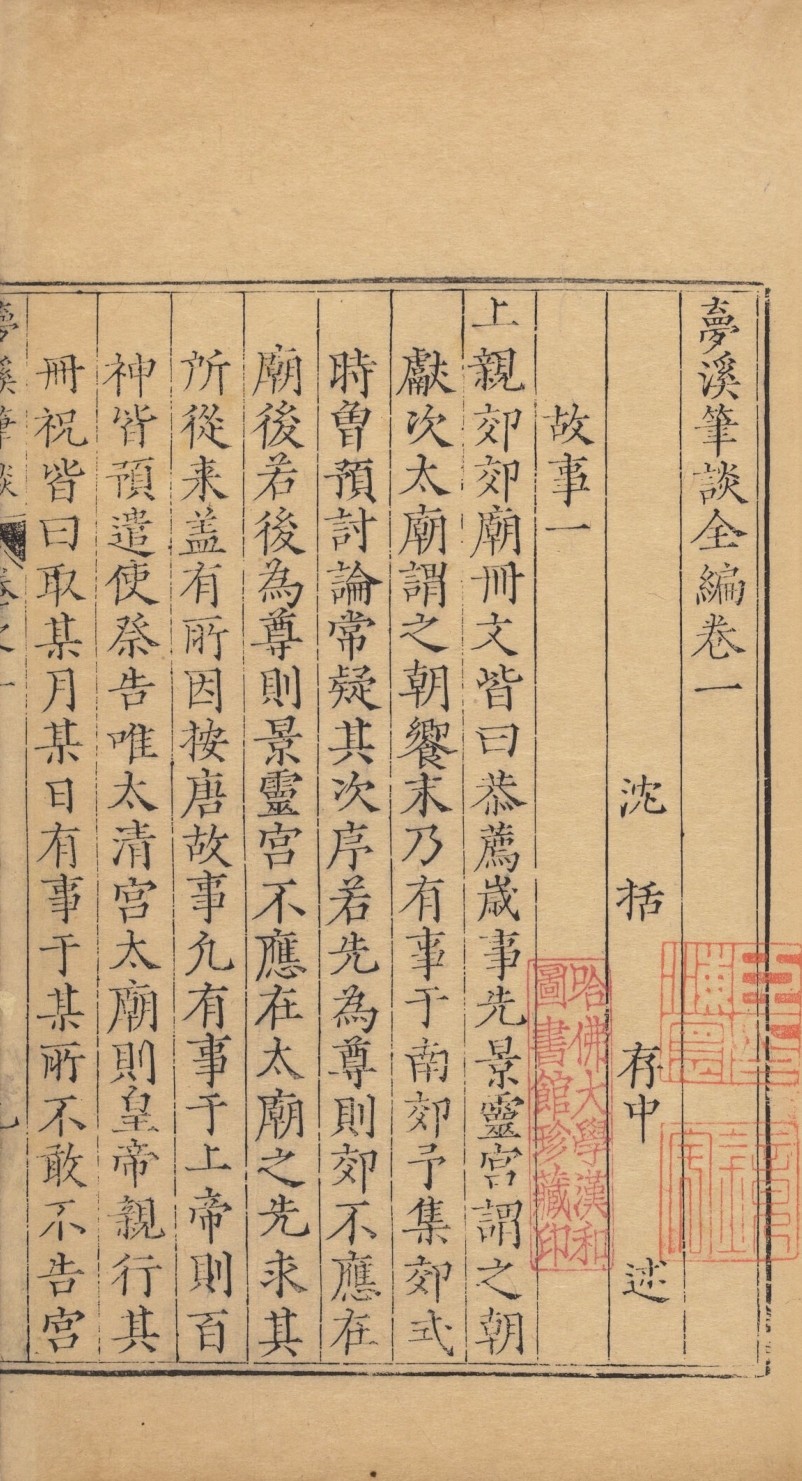 夢溪筆談全編卷一
沈括存中述
故事一
上親郊郊廟冊文皆曰恭薦歲事先景靈宮謂之朝
獻次太廟謂之朝饗末乃有事于南郊予集郊式
時曾預討論常疑其次序若先為尊則郊不應在
廟後若後為尊則景靈宮不應在太廟之先求其
所從来盖有所因按唐故事凢有事于上帝則百
神皆預遣使祭告唯太清宮太廟則皇帝親行其
冊祝皆曰取某月某日有事于某所不敢不告宮
夢溪筆談 卷之一
哈佛大學漢和
圖書館珍藏印